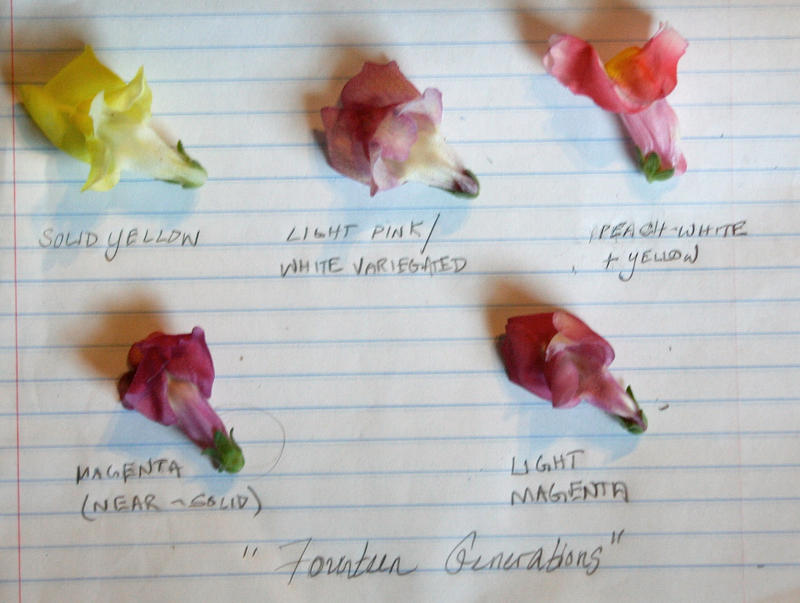 SOLID YELLOW
LIGHT PINK/
WHITE VARIEGATED
PEACH-WHITE
+ YELLOW
MAGENTA
(NEAR-SOLID)
LIGHT
MAGENTA
"Fourteen Generations"